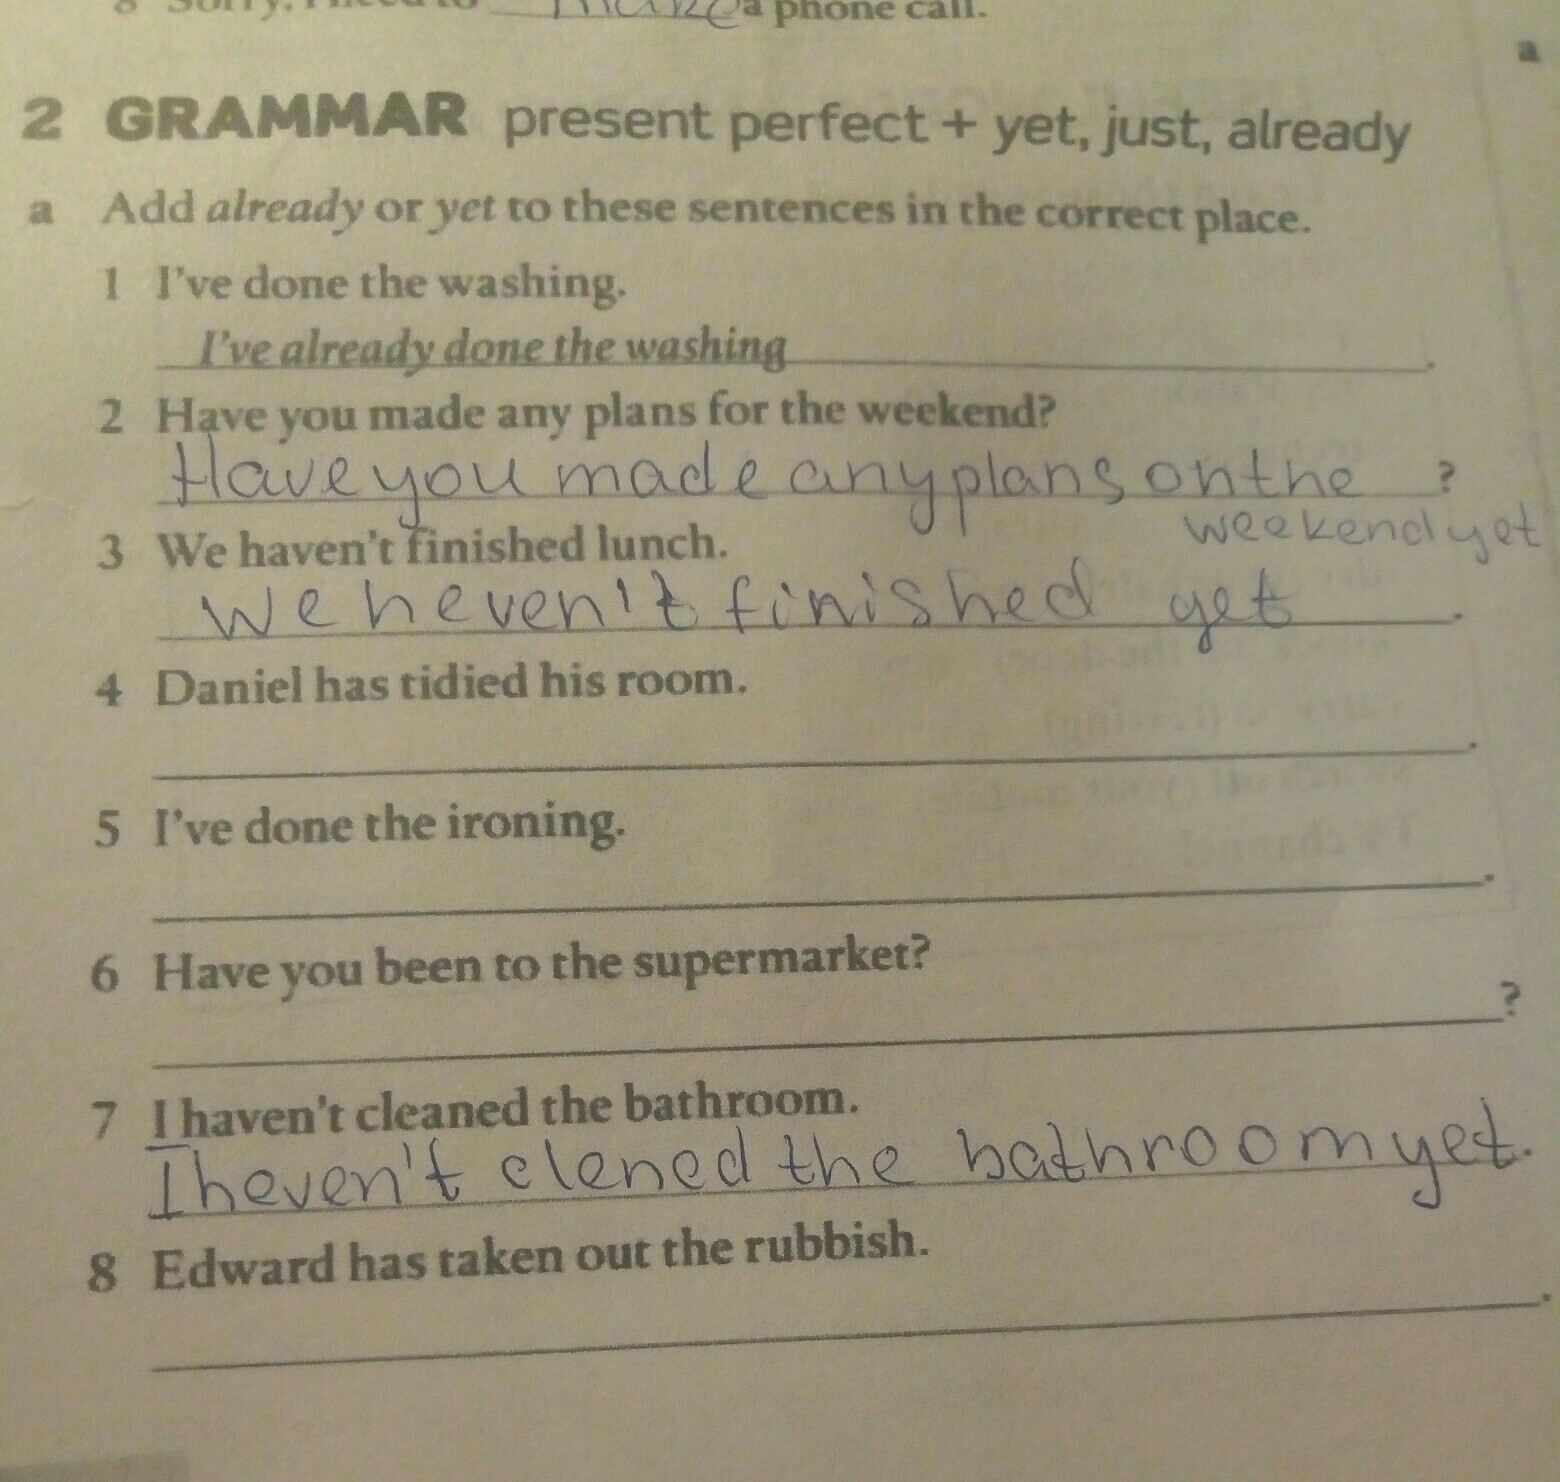 8 Sorry, I need to make a phone call.
a
2 GRAMMAR present perfect + yet, just, already
a Add already or yet to these sentences in the correct place.
1 I've done the washing.
I've already done the washing.
2 Have you made any plans for the weekend?
Have you made any plans on the ?
weekend yet
3 We haven't finished lunch.
We heven't finished yet.
4 Daniel has tidied his room.
.
5 I've done the ironing.
.
6 Have you been to the supermarket?
?
7 I haven't cleaned the bathroom.
I heven't clened the bathroom yet.
8 Edward has taken out the rubbish.
.